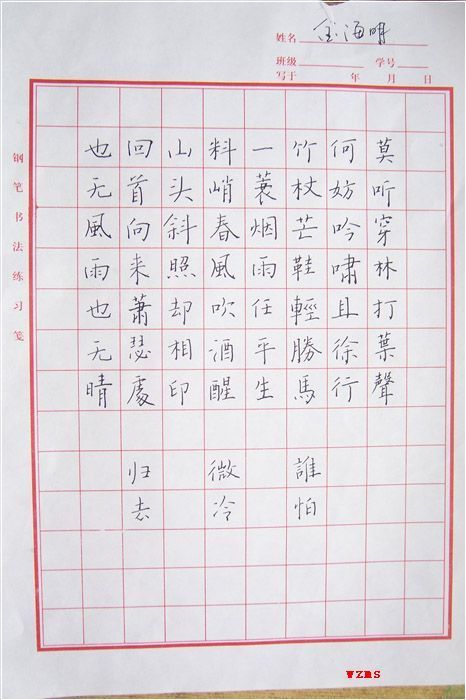 姓名 金海明
班级 学号
写于 年 月 日
钢笔书法练习笺
莫听穿林打葉聲
何妨吟啸且徐行
竹杖芒鞋輕勝馬誰怕
一蓑烟雨任平生
料峭春風吹酒醒微冷
山头斜照却相印
回首向来蕭瑟處归去
也无風雨也无晴
wzms